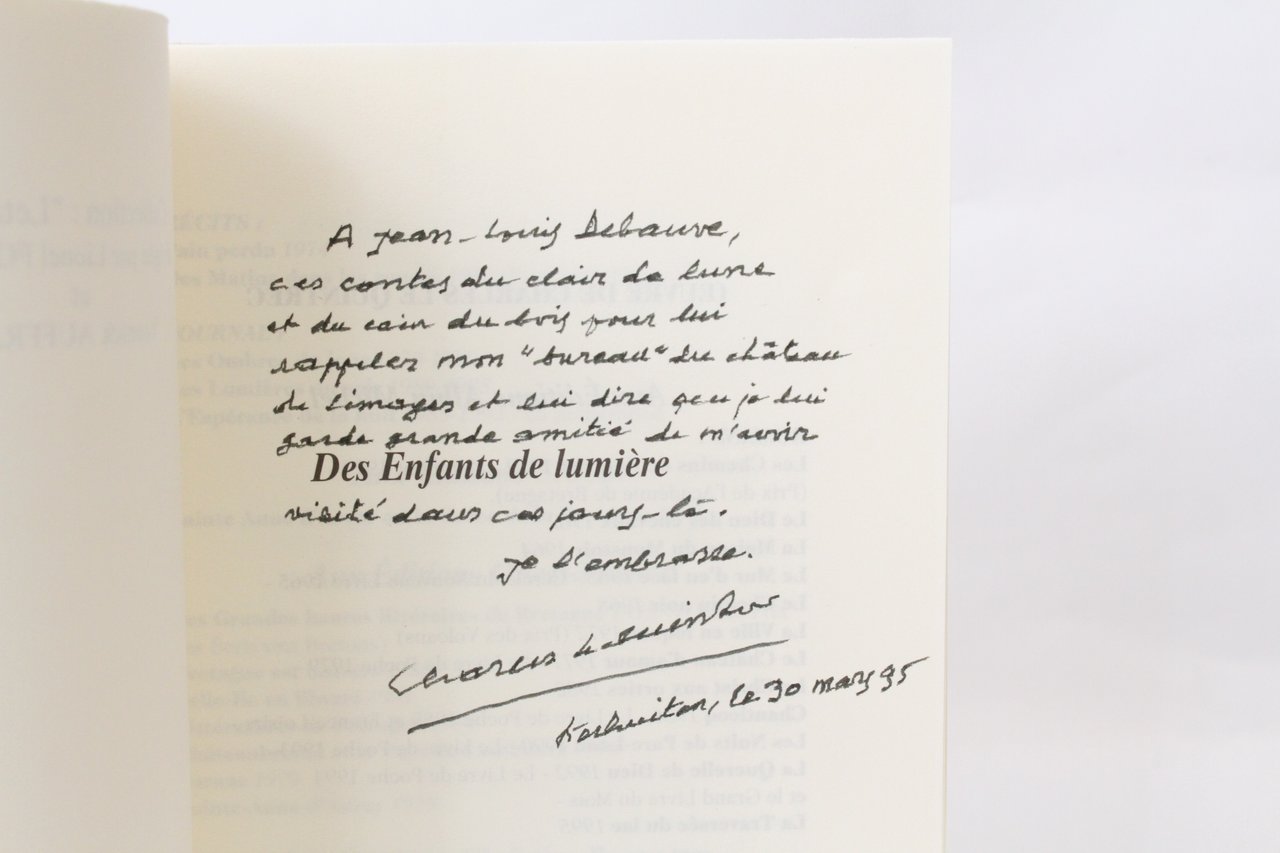 A Jean-Louis Debauve,
ces contes du clair de lune
et du coin du bois pour lui
rappeler mon "bureau" du château
de Limoges et lui dire que je lui
garde grande amitié de m'avoir
Des Enfants de lumière
visité dans ces jours-là.
Je l'embrasse.
Charles Le Quintrec
le 30 mars 95